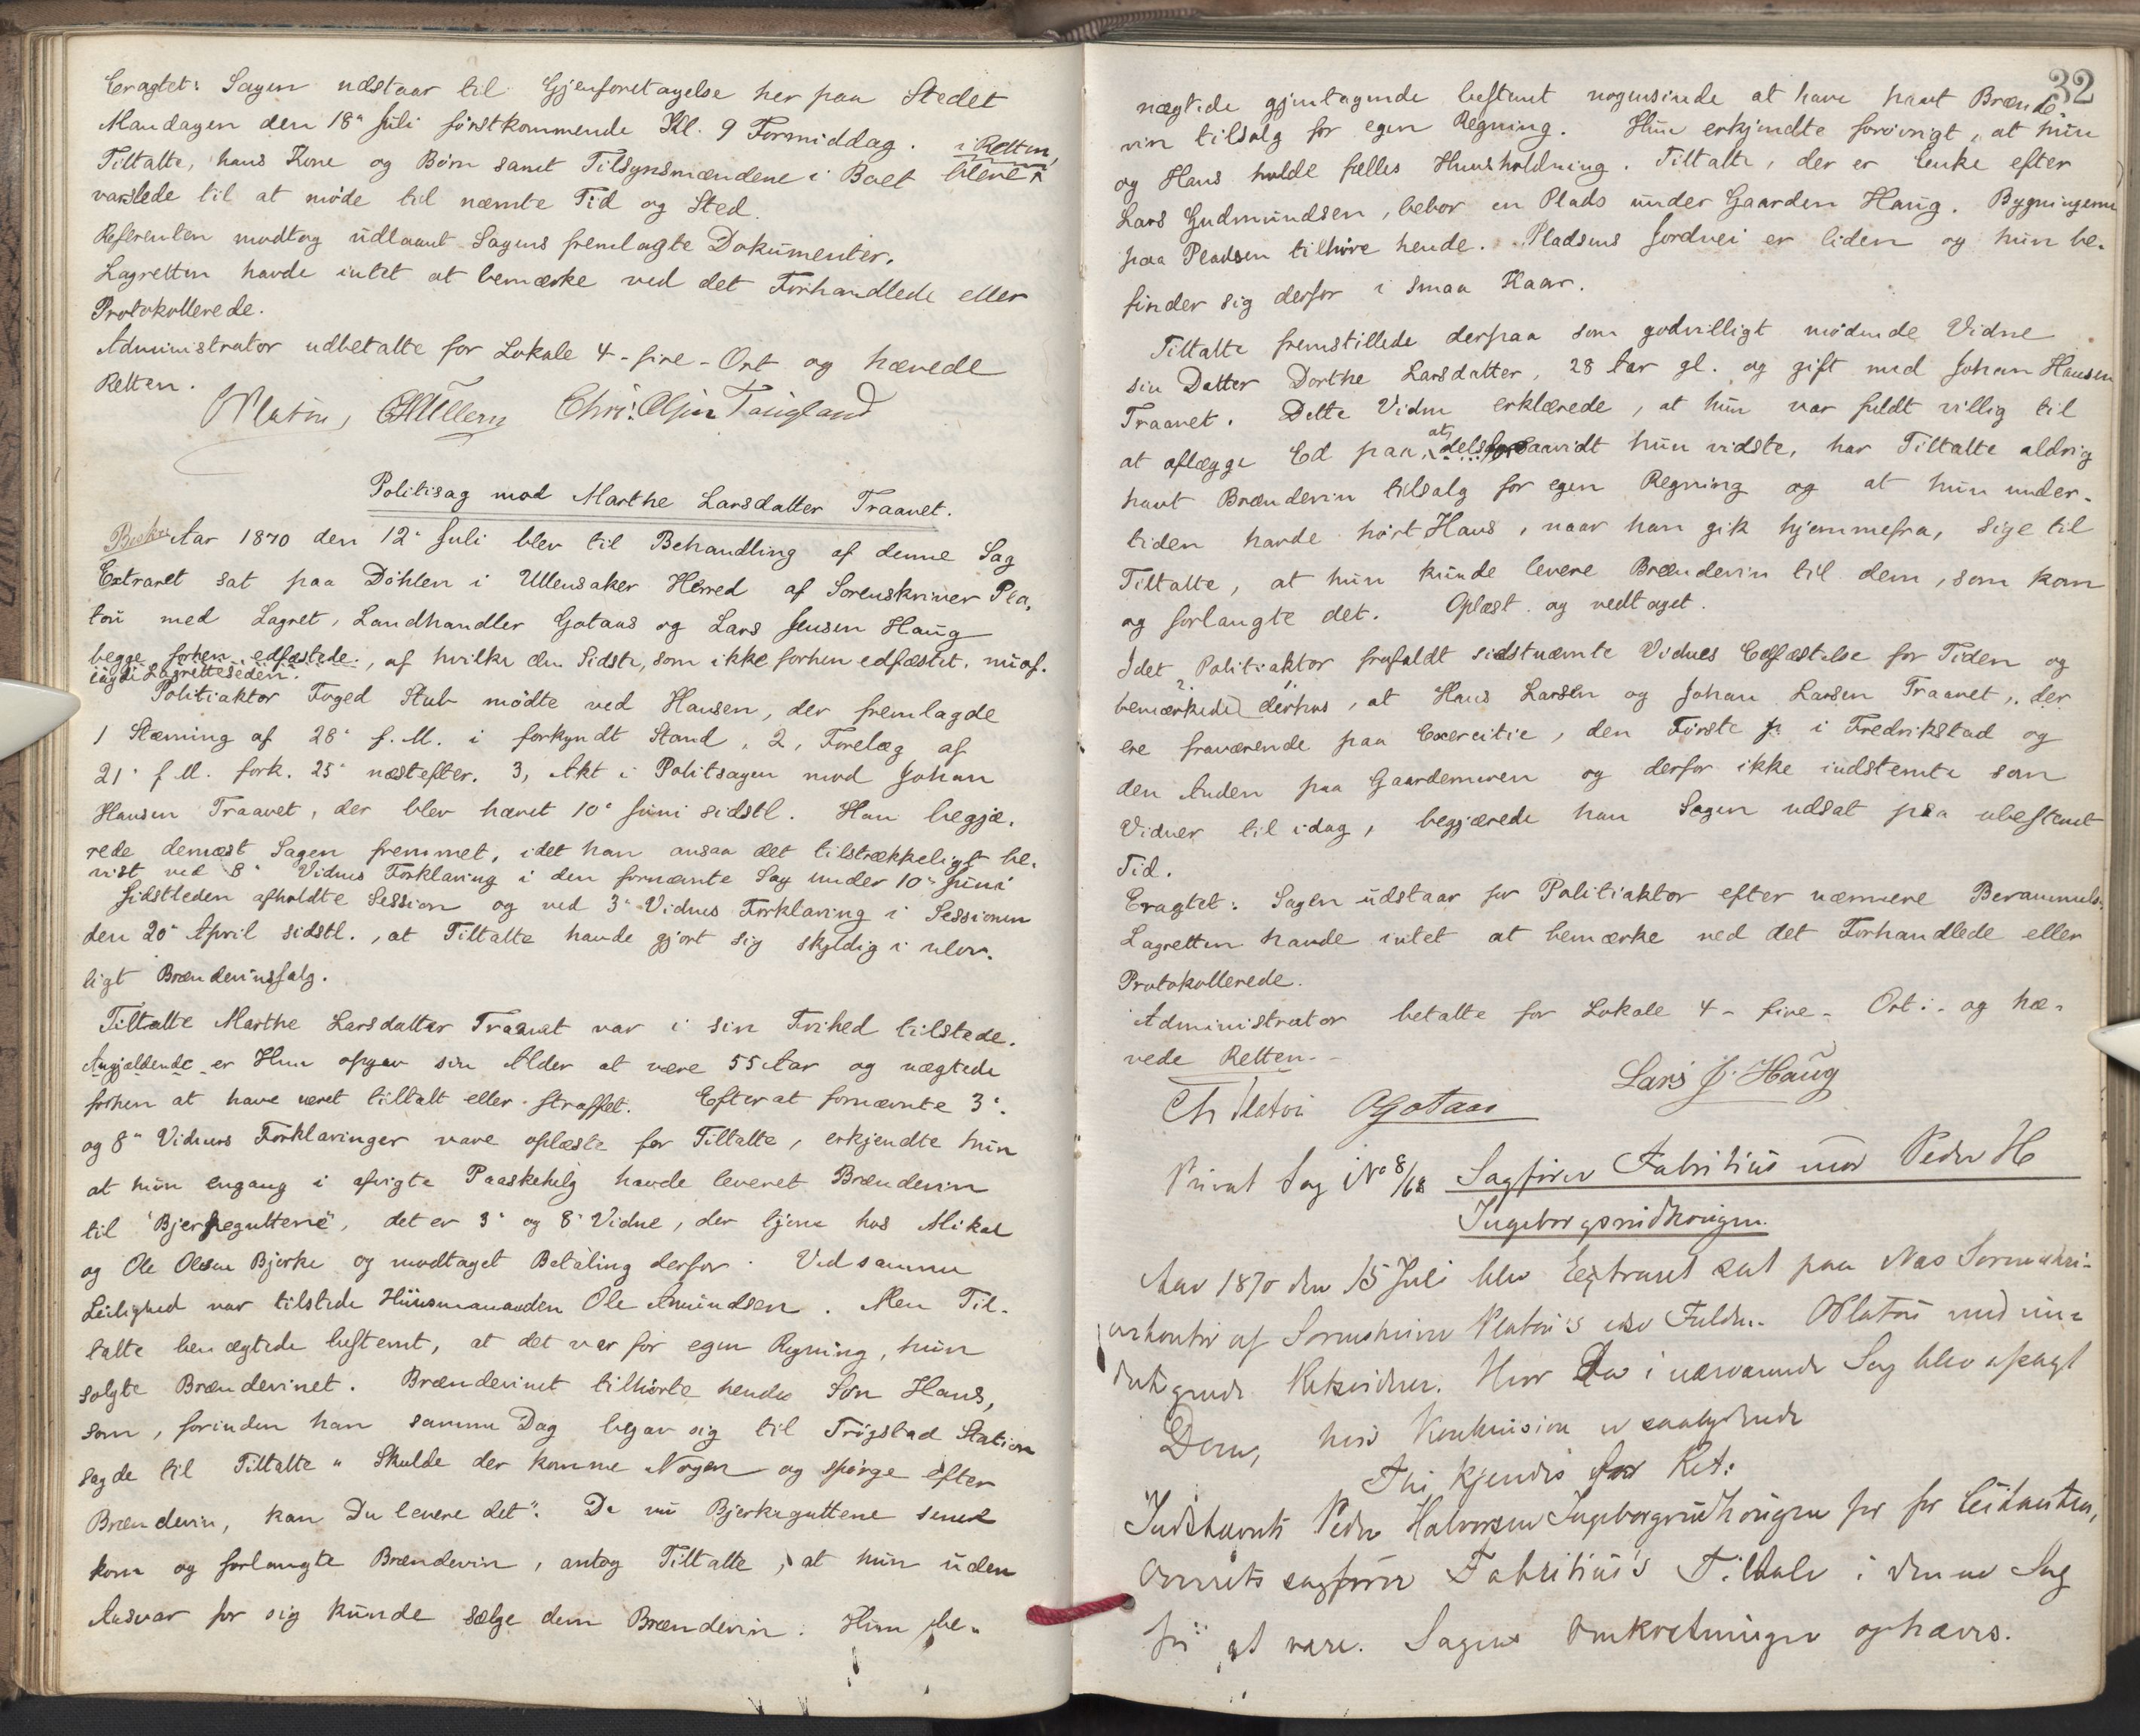 Eragtet: Sagen udstaar til Gjenforetagelse her paa Stedet
Mandagen den 18de Juli førstkommende Kl. 9 Formiddag. i Retten
Tiltalte, hans Kone og Børn samt Tilsynsmændene i Boet bleve
varslede til at møde til nævnte Tid og Sted.
Referenten modtog udlaant Sagens fremlagte Dokumenter.
Lagretten havde intet at bemærke ved det Forhandlede eller
Protokollerede.
Administrator udbetalte for Lokale 4 - fire - Ort og hævede
Retten.
OPlatou, Chr. Olsen
Politisag mod Marthe Larsdatter Traanet.
Beskr. Aar 1870 den 12te Juli blev til Behandling af denne Sag
Extraret sat paa Døhlen i Ullensaker Herred af Sorenskriver Pla-
tou med Lagret, Landhandler Gotaas og Lars Jensen Haug
begge forhen edfæstede, af hvilke den Sidste, som ikke forhen edfæstet, nu af-
lagde Lagretteseden.
Politiaktor Foged Stub mødte ved Hansen, der fremlagde
1 Stævning af 28de f. M. i forkyndt Stand, 2, Forelæg af
21de f. M. fork. 25de næstefter. 3, Akt i Politisagen mod Johan
Hansen Traanet, der blev hævet 10de Juni sidstl. Han begjæ-
rede dernæst Sagen fremmet, idet han ansaa det tilstrækkeligt be-
vist ved 8de Vidnes Forklaring i den fornævnte Sag under 10de Juni
sidstleden afholdte Session og ved 3de Vidnes Forklaring i Sessionen
den 20de April sidstl., at Tiltalte havde gjort sig skyldig i ulov-
ligt Brændevinssalg.
Tiltalte Marthe Larsdatter Traanet var i sin Frihed tilstede.
Angjældende er Hun opgav sin Alder at være 55 Aar og nægtede
forhen at have været tiltalt eller straffet. Efterat fornævnte 3de
og 8de Vidners Forklaringer vare oplæste for Tiltalte, erkjendte hun
at hun engang i afvigte Paaskehelg havde leveret Brændevin
til "Bjerkeguttene", det er 3de og 8de Vidne, der tjene hos Mikal
og Ole Olsen Bjerke og modtaget Betaling derfor. Ved samme
Leilighed var tilstede Huusmanden Ole Amundsen. Men Til-
talte benægtede bestemt, at det var for egen Regning, hun
solgte Brændevinet. Brændevinet tilhørte hendes Søn Hans,
som, forinden han samme Dag begav sig til Trøgstad Station
sagde til Tiltalte "Skulde der komme Nogen og spørge efter
Brændevin, kan Du levere det". Da nu Bjerkeguttene senere
kom og forlangte Brændevin, antog Tiltalte, at hun uden
Ansvar for sig kunde sælge dem Brændevin. Hun be-
32
nægtede gjentagende bestemt nogensinde at have havt Brænde-
vin tilsalg for egen Regning. Hun erkjendte forøvrigt, at hun
og Hans holde fælles Huusholdning. Tiltalte, der er Enke efter
Lars Gudmundsen, bebor en Plads under Gaarden Haug. Bygningerne
paa Pladsen tilhøre hende. Pladsens Jordvei er liden og hun be-
finder sig derfor i smaa Kaar.
Tiltalte fremstillede derpaa som godvilligt mødende Vidne
sin Datter Dorthe Larsdatter, 28 Aar gl. og gift med Johan Hansen
Traanet. Dette Vidne erklærede, at hun var fuldt villig til
at aflægge Ed paa, at dels saavidt hun vidste, har Tiltalte aldrig
havt Brændevin tilsalg for egen Regning og at hun under-
tiden havde hørt Hans, naar han gik hjemmefra, sige til
Tiltalte, at hun kunde levere Brændevin til dem, som kom
og forlangte det. Oplæst og vedtaget.
Idet Politiaktor frafaldt sidstnævnte Vidnes Edfæstelse for Tiden og
bemærkede derhos, at Hans Larsen og Johan Larsen Traanet, der
ere fraværende paa Exercitie, den Første i Fredrikstad og
den Anden paa Gaardermoen og derfor ikke indstevnte som
Vidner til idag, begjærede han Sagen udsat paa ubestemt
Tid.
Eragtet: Sagen udstaar for Politiaktor efter nærmere Berammels.
Lagretten havde intet at bemærke ved det Forhandlede eller
Protokollerede.
Administrator betalte for Lokale 4 - fire - Ort - og hæ-
vede Retten.
Ch Platou OGotaas Lars J. Haug
Privat Sag No 8/68 Sagfører Fabritius mod Peder H
Ingeborgsrudhougen.
Aar 1870 den 15 Juli blev Extraret sat paa Næs Sorenskri-
verkontor af Sorenskriver Platou's edsv. Fuldm. OPlatou med un-
dertegnede Retsvidner. Hvor da i nærværende Sag blev afsagt
Dom, hvis Konklusion er saalydende
Thi kjendes for Ret:
Indstævnte Peder Halvorsen Ingeborgsrudhougen bør for Citanten,
Overretssagfører Fabritius's Tiltale i denne Sag
fri at være. Sagens Omkostninger ophæves.